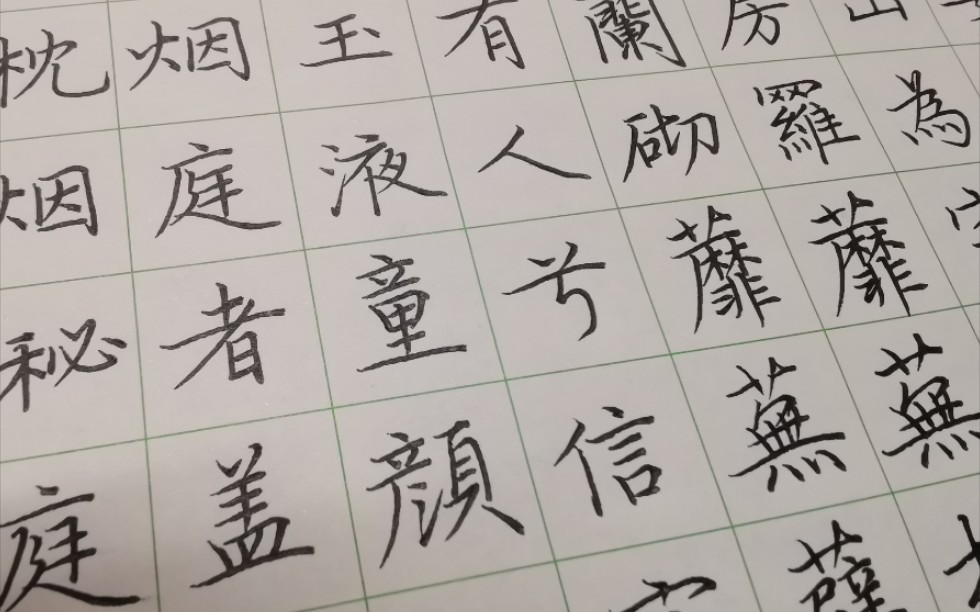 山為
房羅蘼蕪
蘭砌蘼蕪薜
有人兮信
玉液童顏
烟庭者盖
枕烟秘庭